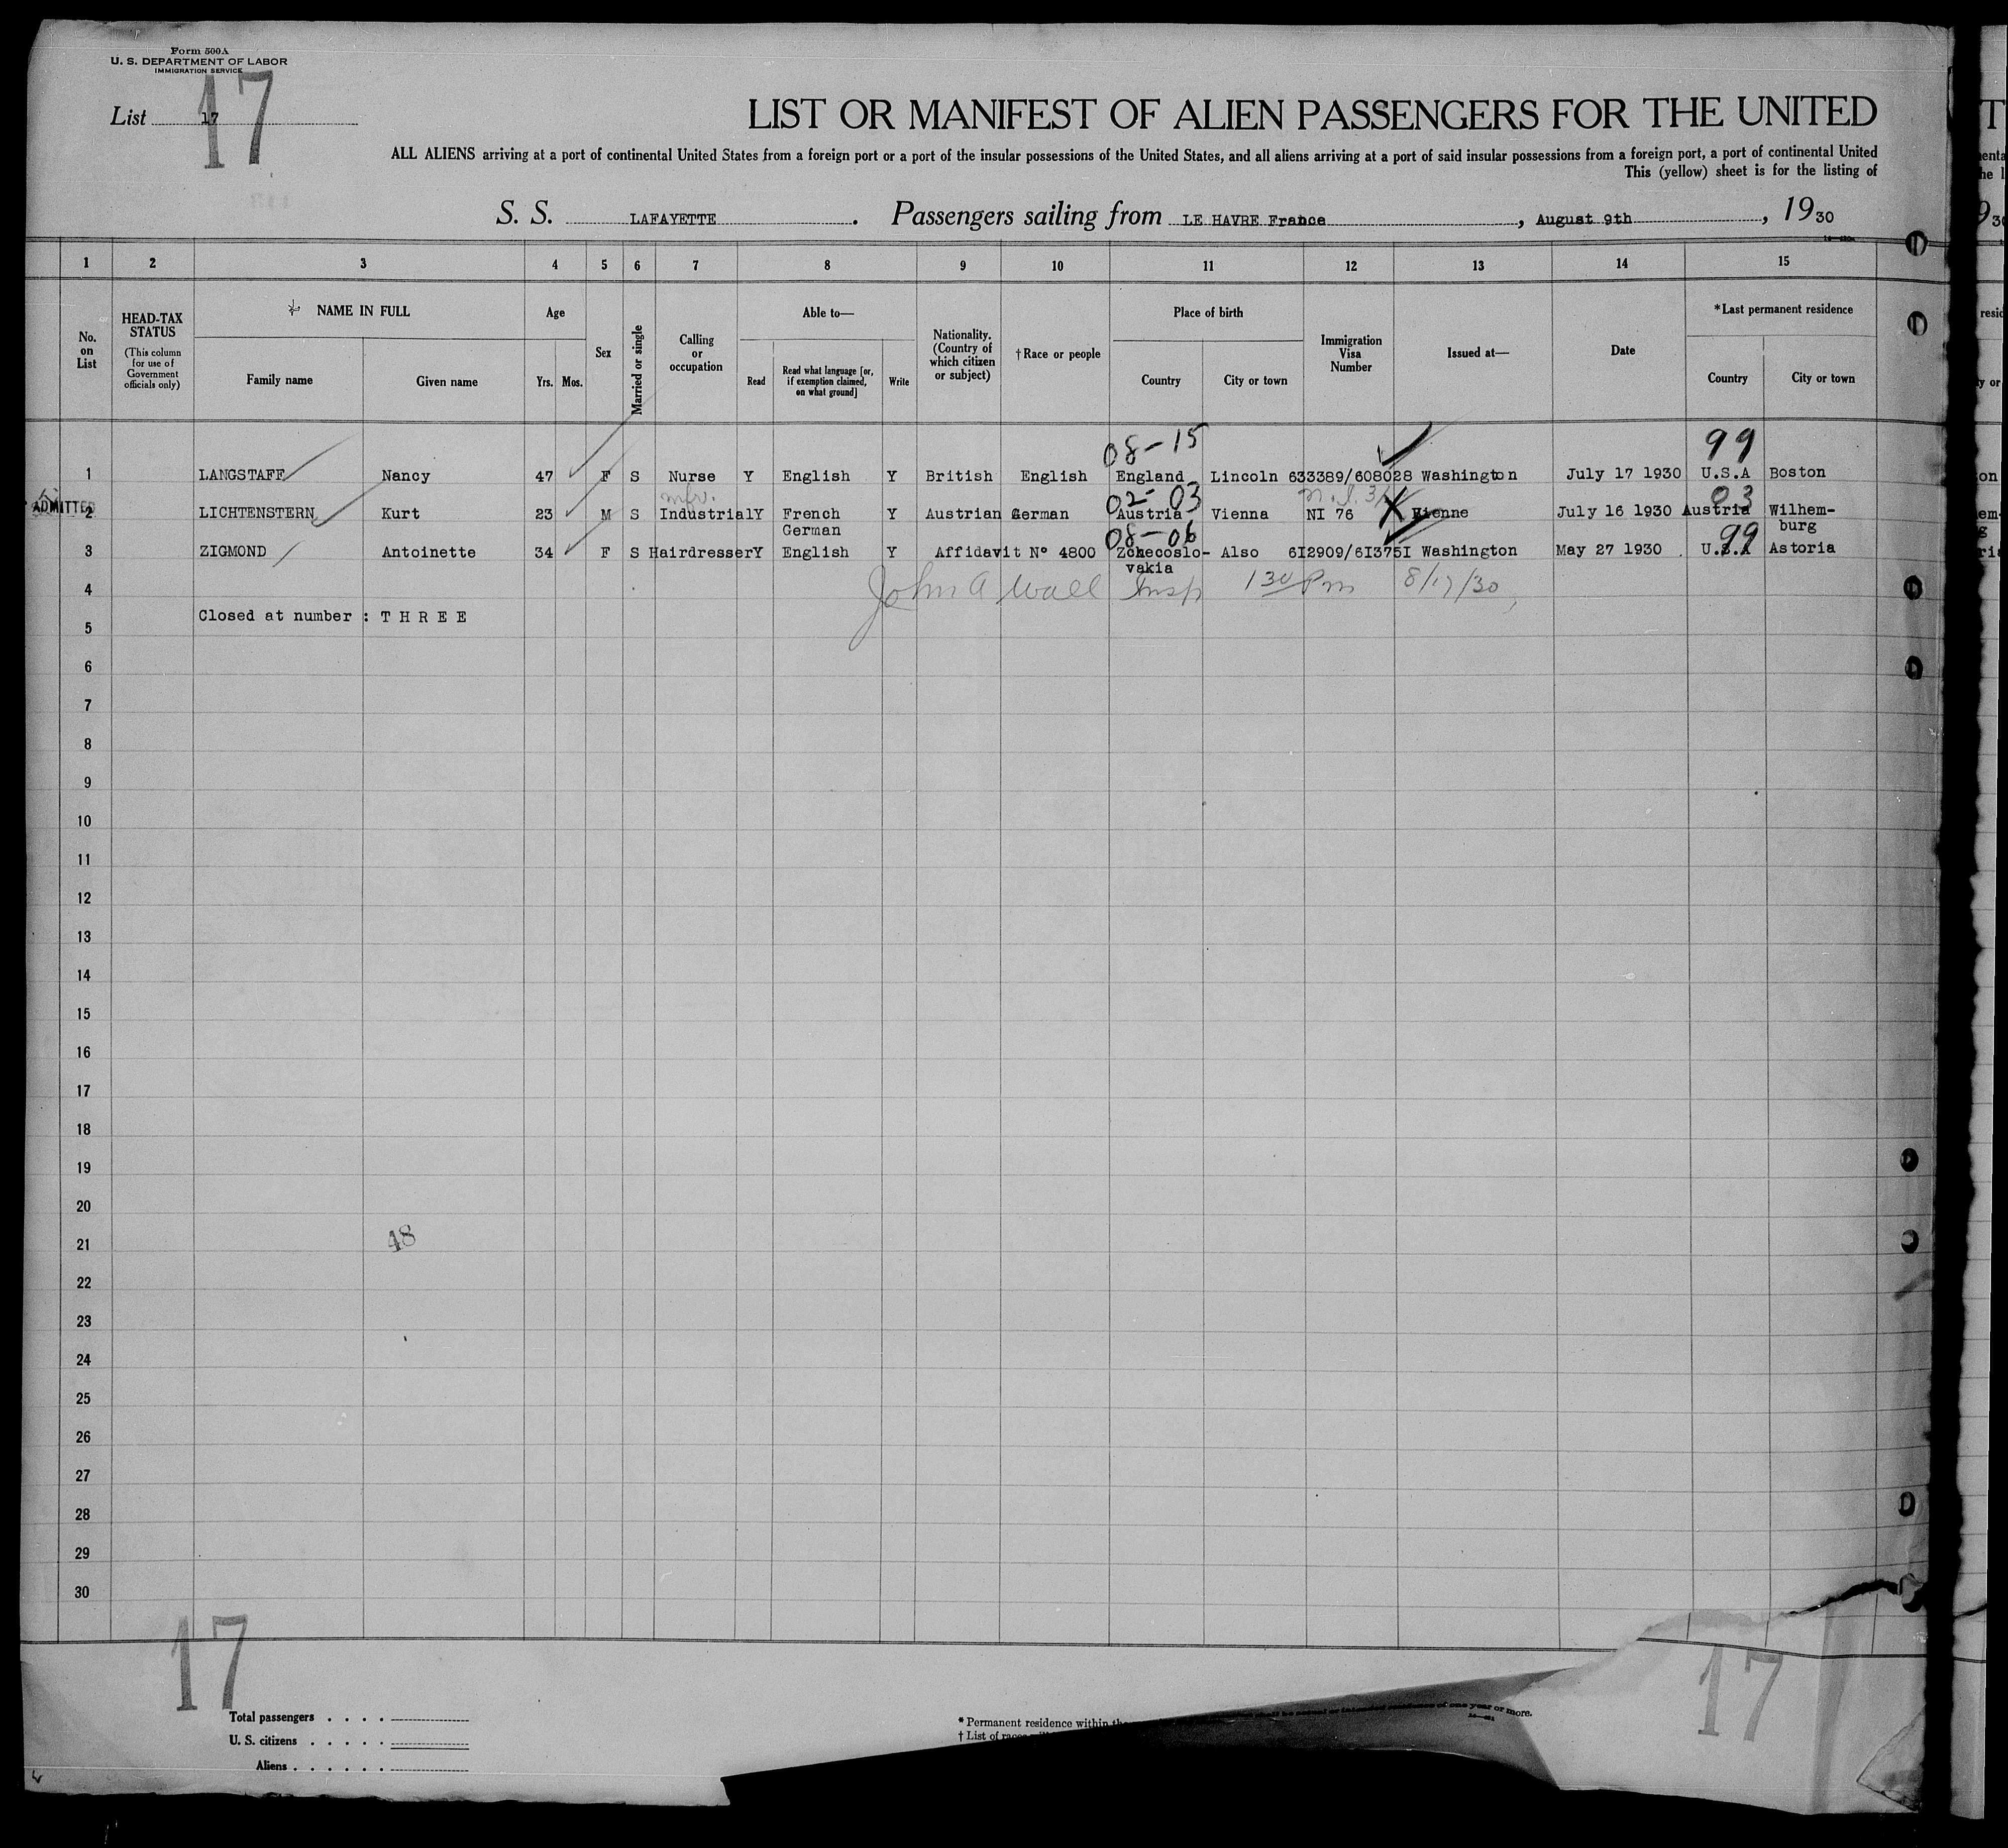 Form 500A
U. S. DEPARTMENT OF LABOR
IMMIGRATION SERVICE
17
List 17
LIST OR MANIFEST OF ALIEN PASSENGERS FOR THE UNITED
ALL ALIENS arriving at a port of continental United States from a foreign port or a port of the insular possessions of the United States, and all aliens arriving at a port of said insular possessions from a foreign port, a port of continental United
This (yellow) sheet is for the listing of
S. S. LAFAYETTE. Passengers sailing from LE HAVRE France, August 9th, 1930
1 2 3 4 5 6 7 8 9 10 11 12 13 14 15
No. on List
HEAD-TAX STATUS
(This column for use of Government officials only)
NAME IN FULL
Family name Given name
Age
Yrs. Mos.
Sex
Married or single
Calling or occupation
Able to—
Read
Read what language [or, if exemption claimed, on what ground]
Write
Nationality. (Country of which citizen or subject)
†Race or people
Place of birth
Country City or town
Immigration Visa Number
Issued at—
Date
*Last permanent residence
Country City or town
08-15 99
1 LANGSTAFF Nancy 47 F S Nurse Y English Y British English England Lincoln 633389/608028 Washington July 17 1930 U.S.A Boston
mfr. 02-03 03
ADMITTED
2 LICHTENSTERN Kurt 23 M S Industrial Y French Y Austrian German Austria Vienna NI 76 Vienne July 16 1930 Austria Wilhem-
German burg
08-06 99
3 ZIGMOND Antoinette 34 F S Hairdresser Y English Y Affidavit N° 4800 Zchecoslo- Also 6I2909/6I375I Washington May 27 1930 U.S.A Astoria
vakia
4 John A Wall Insp 1 30 Pm 8/17/30
Closed at number : T H R E E
5
6
7
8
9
10
11
12
13
14
15
16
17
18
19
20
21
48
22
23
24
25
26
27
28
29
30
17 17
Total passengers . . . .
U. S. citizens . . . . .
Aliens . . . . . .
* Permanent residence within
of one year or more.
† List of